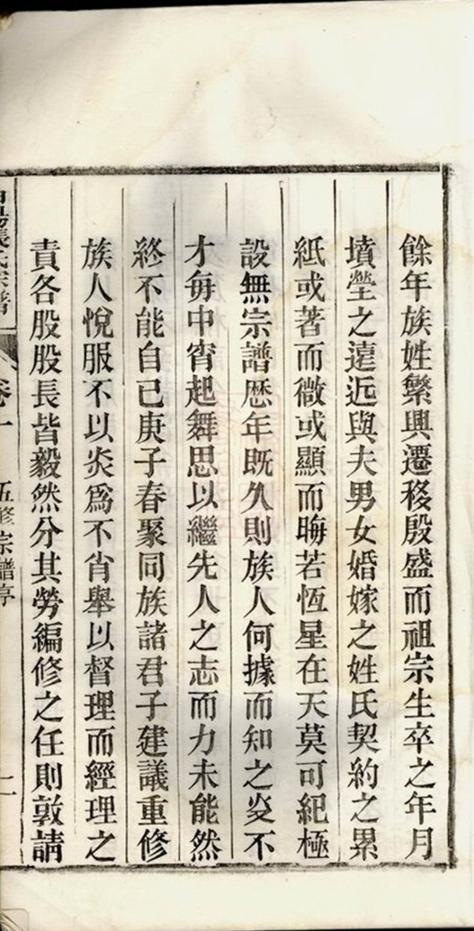 餘年族姓繁興遷移殷盛而祖宗生卒之年月
墳塋之遠近與夫男女婚嫁之姓氏契約之累
紙或著而微或顯而晦若恆星在天莫可紀極
設無宗譜歷年既久則族人何據而知之炎不
才每中宵起舞思以繼先人之志而力未能然
終不能自已庚子春聚同族諸君子建議重修
族人悅服不以炎爲不肖舉以督理而經理之
責各股股長皆毅然分其勞編修之任則敦請
張氏宗譜 卷一 五修宗譜序 二